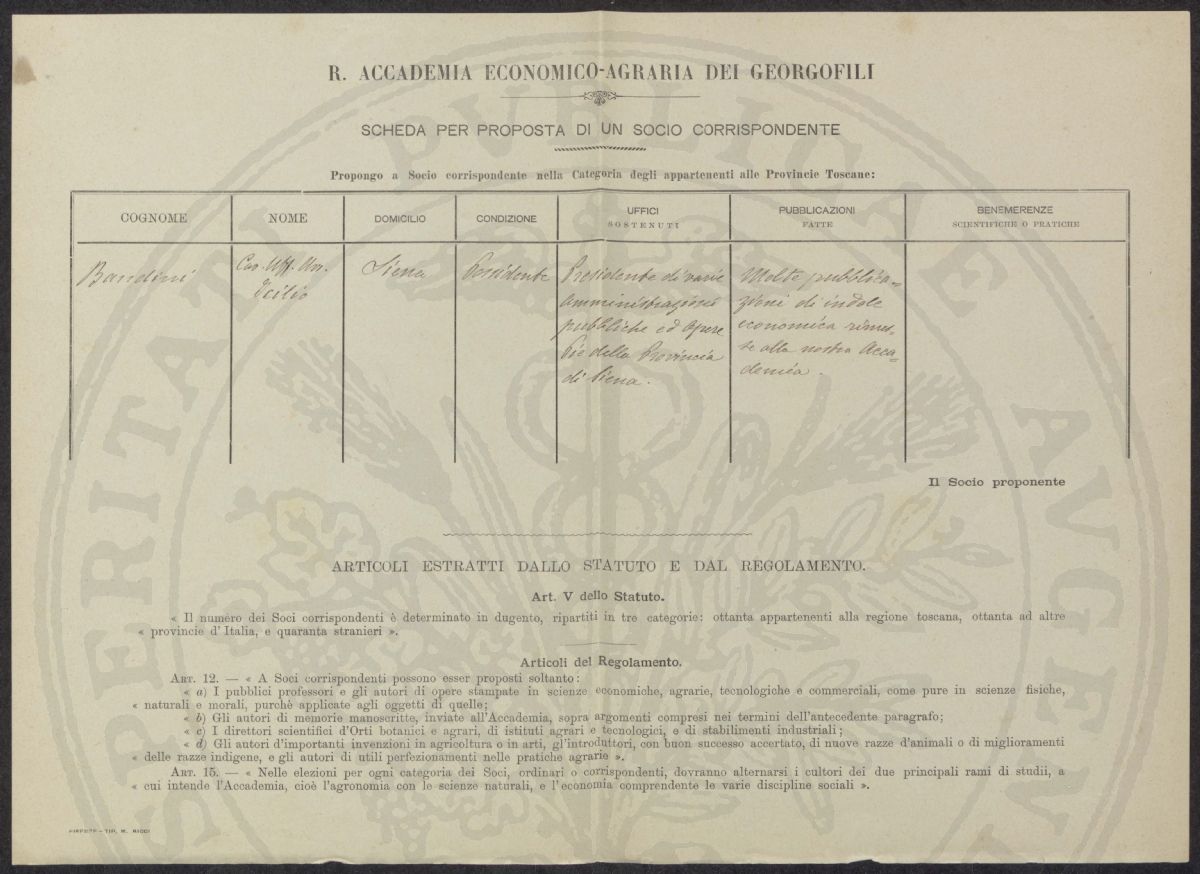 R. ACCADEMIA ECONOMICO-AGRARIA DEI GEORGOFILI
SCHEDA PER PROPOSTA DI UN SOCIO CORRISPONDENTE
Propongo a Socio corrispondente nella Categoria degli appartenenti alle Provincie Toscane:
COGNOME
NOME
DOMICILIO
CONDIZIONE
UFFICI
SOSTENUTI
PUBBLICAZIONI
FATTE
BENEMERENZE
SCIENTIFICHE O PRATICHE
Bandini
Cav. Uff. Avv.
Icilio
Siena
Possidente
Presidente di varie
amministrazioni
pubbliche ed Opere
Pie della Provincia
di Siena.
Molte pubblica=
zioni di indole
economica rimes=
se alla nostra Acca=
demia.
Il Socio proponente
ARTICOLI ESTRATTI DALLO STATUTO E DAL REGOLAMENTO.
Art. V dello Statuto.
« Il numero dei Soci corrispondenti è determinato in dugento, ripartiti in tre categorie: ottanta appartenenti alla regione toscana, ottanta ad altre
« provincie d'Italia, e quaranta stranieri ».
Articoli del Regolamento.
ART. 12. — « A Soci corrispondenti possono esser proposti soltanto:
« a) I pubblici professori e gli autori di opere stampate in scienze economiche, agrarie, tecnologiche e commerciali, come pure in scienze fisiche,
« naturali e morali, purchè applicate agli oggetti di quelle;
« b) Gli autori di memorie manoscritte, inviate all'Accademia, sopra argomenti compresi nei termini dell'antecedente paragrafo;
« c) I direttori scientifici d'Orti botanici e agrari, di istituti agrari e tecnologici, e di stabilimenti industriali;
« d) Gli autori d'importanti invenzioni in agricoltura o in arti, gl'introduttori, con buon successo accertato, di nuove razze d'animali o di miglioramenti
« delle razze indigene, e gli autori di utili perfezionamenti nelle pratiche agrarie ».
ART. 15. — « Nelle elezioni per ogni categoria dei Soci, ordinari o corrispondenti, dovranno alternarsi i cultori dei due principali rami di studii, a
« cui intende l'Accademia, cioè l'agronomia con le scienze naturali, e l'economia comprendente le varie discipline sociali ».
FIRENZE – TIP. M. RICCI
PROSPERITATI PVBLICAE AVGENDAE